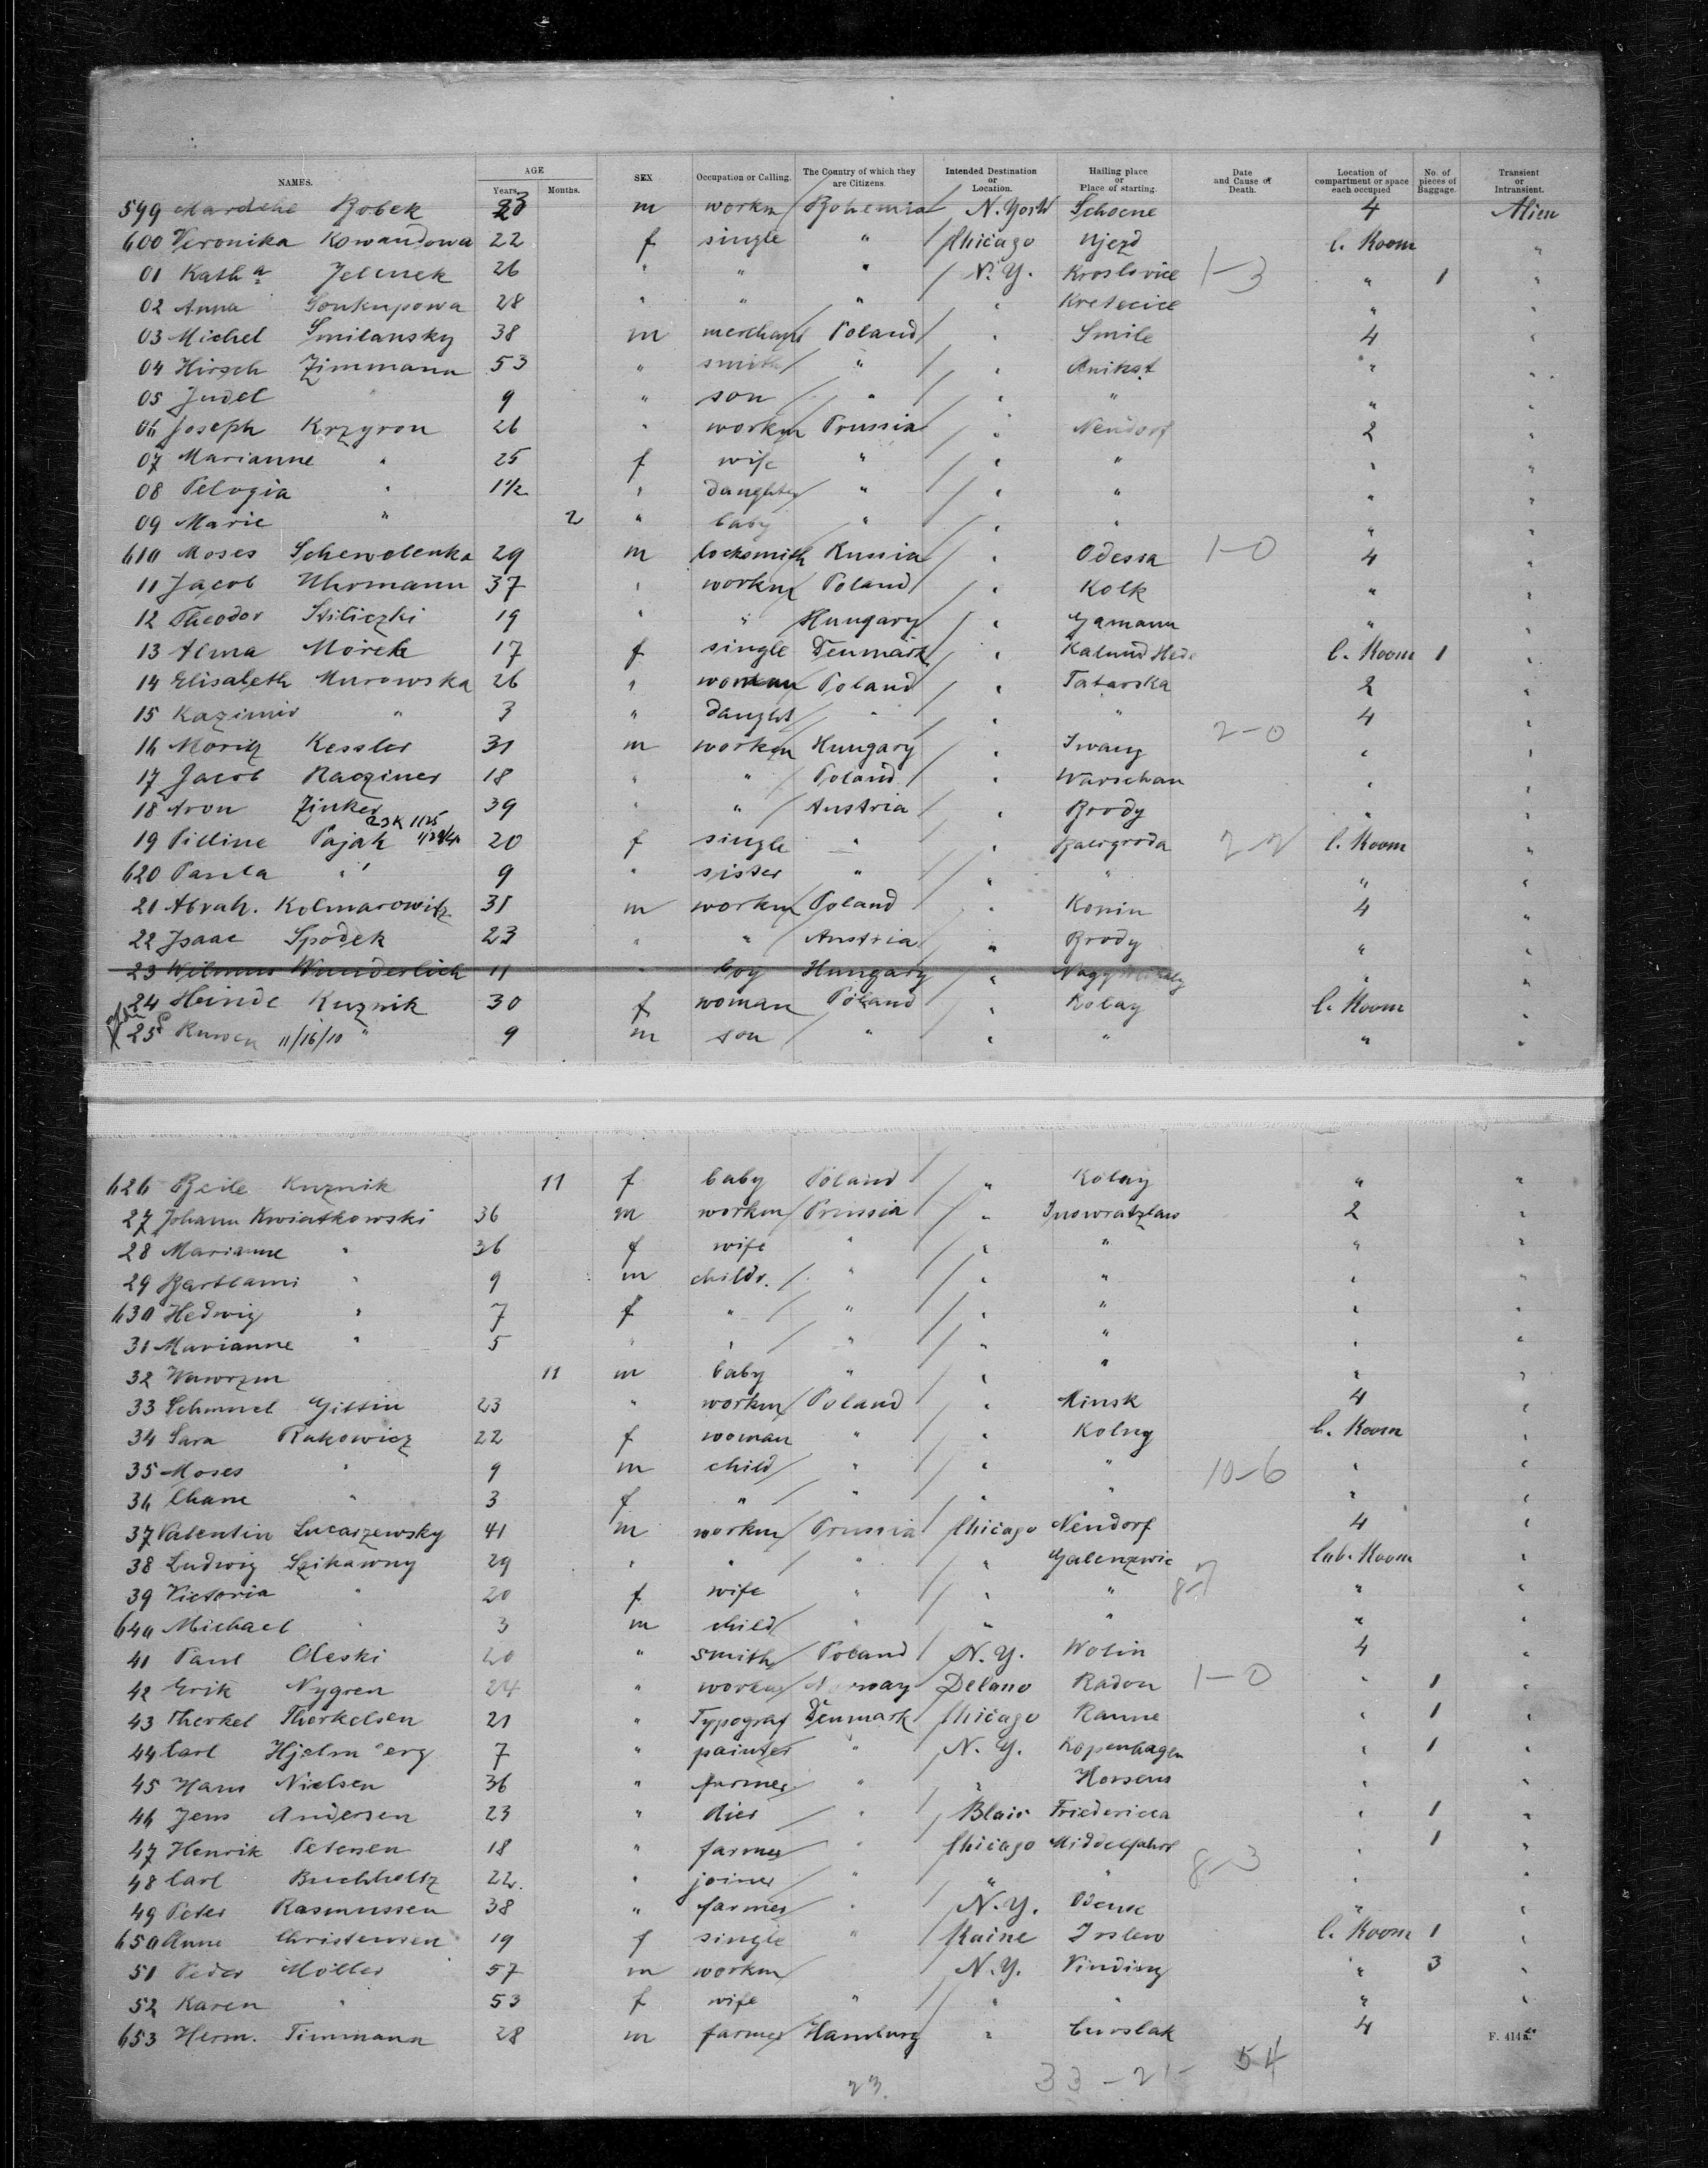 NAMES. AGE Years. Months. SEX Occupation or Calling. The Country of which they are Citizens. Intended Destination or Location. Hailing place or Place of starting. Date and Cause of Death. Location of compartment or space each occupied No. of pieces of Baggage. Transient or Intransient.
599 Bobek 23 m workm Bohemia N. York Schoene 4 Alien
600 Veronika Kowandowa 22 f single " Chicago Ujezd C. Room "
01 Katha Jelinek 26 " " " N. Y. 1-3 " 1 "
02 Anna Soukupowa 28 " " " " " "
03 Michel Smilansky 38 m merchant Poland " Smile 4 "
04 Hirsch Zimmann 53 " smith " " Anikst " "
05 Judel " 9 " son " " " " "
06 Joseph Krzyron 26 " workm Prussia " Neudorf 2 "
07 Marianne " 25 f wife " " " " "
08 Pelogia " 1 1/2 " daughter " " " " "
09 Marie " 2 " baby " " " " "
610 Moses Schewolenka 29 m locksmith Russia " Odessa 1-0 4 "
11 Jacob Uhrmann 37 " workm Poland " Kolk " "
12 Theodor 19 " " Hungary " Gamann " "
13 Alma Mörch 17 f single Denmark " C. Room 1 "
14 Elisabeth Murowska 26 " woman Poland " Tatarska 2 "
15 Kazimir " 3 " daught " " " 4 "
16 Moritz Kessler 31 m workm Hungary " Iwany 2-0 " "
17 Jacob Racziner 18 " " Poland " Warschau " "
18 Aron Zinker 39 " " Austria " Brody " "
19 Pajak 20 f single " " C. Room "
620 Paula " 9 " sister " " " " "
21 Abrah. Kolmarowitz 31 m workm Poland " Konin 4 "
22 Isaac Spodek 23 " " Austria " Brody " "
23 Wunderlich 11 " boy Hungary " " "
24 Heinde Kuznik 30 f woman Poland " Kolay C. Room "
25 Ruwen 11/16/10 " 9 m son " " " " "
626 Beile Kuznik 11 f baby Poland " Kolay " "
27 Johann Kwiatkowski 36 m workm Prussia " Inowratzlaw 2 "
28 Marianne " 36 f wife " " " " "
29 Bartlami " 9 m childr. " " " " "
630 Hedwig " 7 f " " " " " "
31 Marianne " 5 " " " " " " "
32 Wawrzin 11 m baby " " " " "
33 Schmuel Gittin 23 " workm Poland " Minsk 4 "
34 Sara Rakowicz 22 f woman " " Kolny C. Room "
35 Moses " 9 m child " " " 10-6 " "
36 Chane " 3 f " " " " " "
37 Valentin Lucaszewsky 41 m workm Prussia Chicago Neudorf 4 "
38 Ludwig Szikawny 29 " " " " Cab. Room "
39 Victoria " 20 f wife " " " " "
640 Michael " 3 m child " " " " "
41 Paul Oleski 20 " smith Poland N. Y. Wolin 4 "
42 Erik Nygren 24 " workm Norway Delano Radon 1-0 " 1 "
43 Therkel Therkelsen 21 " Typograf Denmark Chicago Ranne " 1 "
44 Carl Hjelm erg 7 " painter " N. Y. Kopenhagen " 1 "
45 Hans Nielsen 36 " farmer " " Horsens " "
46 Jens Andersen 23 " " Blair Friedericia " 1 "
47 Henrik Petersen 18 " farmer " Chicago Middelfahrt " 1 "
48 Carl Buchholtz 22. " joiner " " " 8-3 " "
49 Peter Rasmussen 38 " farmer " N. Y. Odense " "
650 Anne Christensen 19 f single " Raine C. Room 1 "
51 Peder Möller 57 m workm N. Y. Vinding " 3 "
52 Karen " 53 f wife " " " " "
653 Herm. Timmann 28 m farmer Hamburg " Curslak 4
F. 414
23. 33-21 54